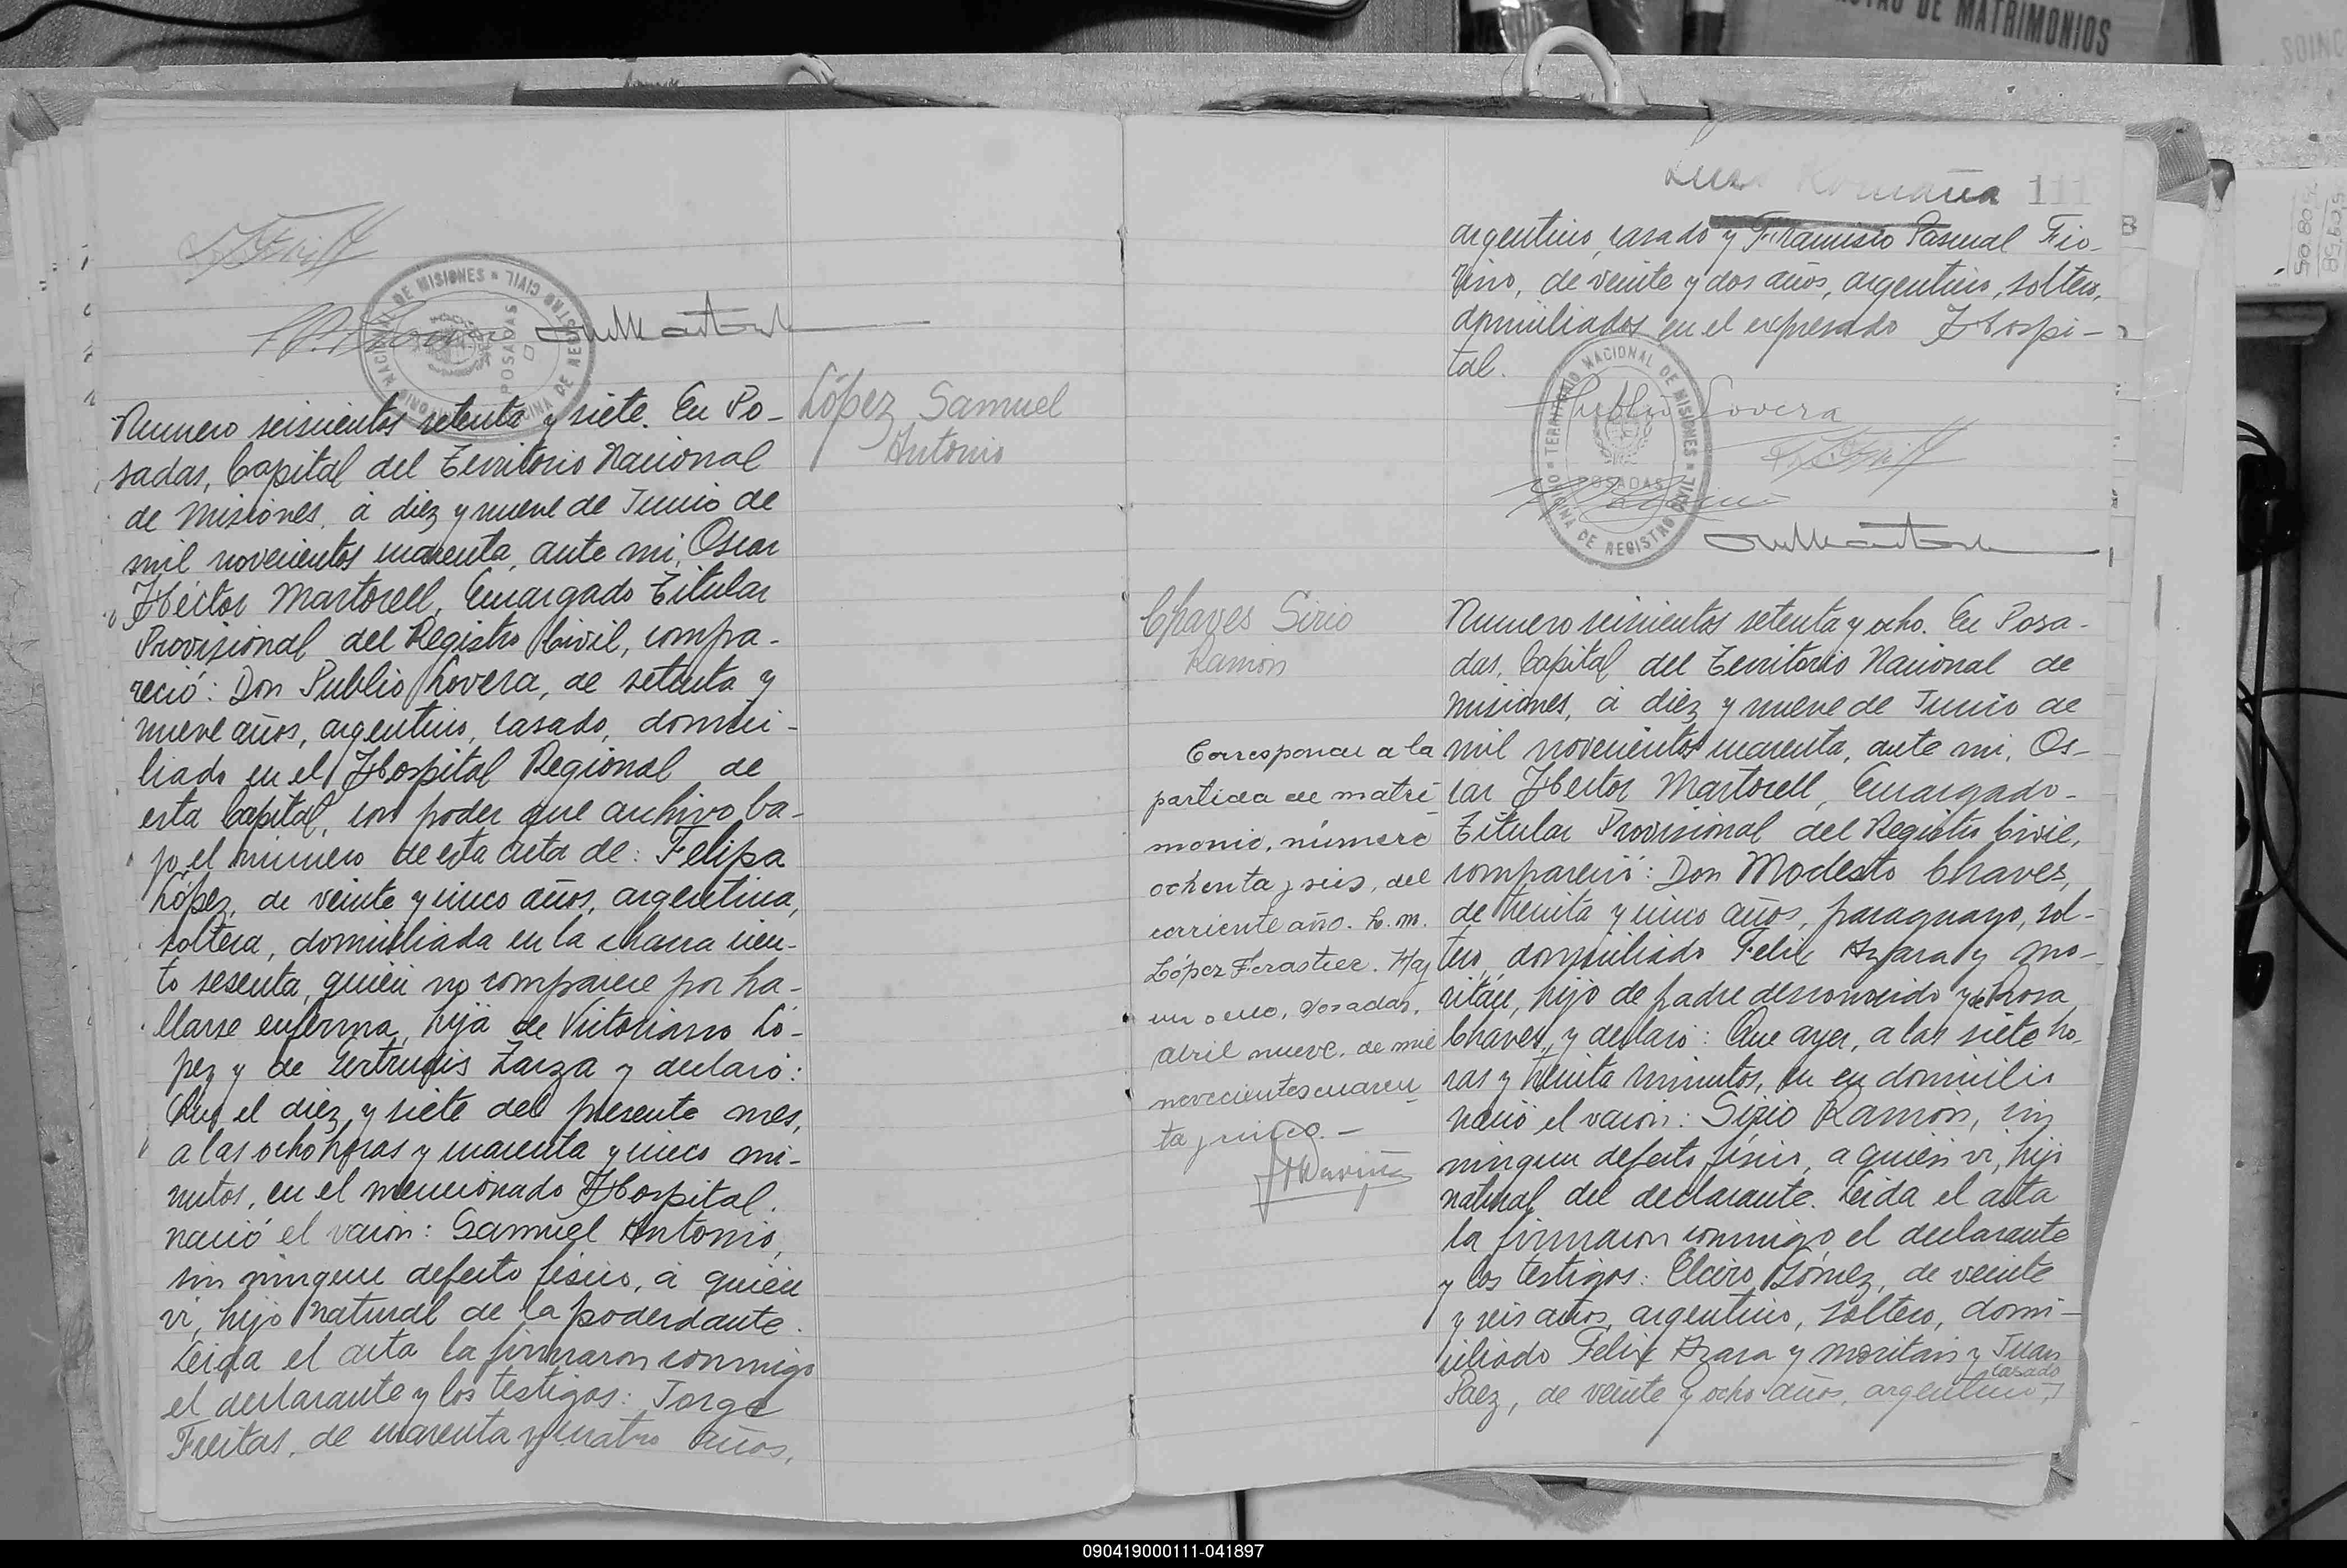 López Samuel
Antonio
Numero seiscientos setenta y siete. En Po-
sadas, Capital del Territorio Nacional
de Misiones, á diez y nueve de Junio de
mil novecientos cuarenta, ante mi, Oscar
Héctor Martorell, Encargado Titular
Provisional del Registro Civil, compa-
reció: Don Publio Lovera, de setenta y
nueve años, argentino, casado, domici-
liado en el Hospital Regional de
esta Capital, con poder que archivo ba-
jo el número de esta acta de: Felipa
López, de veinte y cinco años, argentina,
soltera, domiciliada en la chacra cien-
to sesenta, quién no comparece por ha-
llarse enferma, hija de Victoriano Ló-
pez y de Gertrudis Zarza y declaró:
Que el diez y siete del presente mes,
a las ocho horas y cuarenta y cinco mi-
nutos, en el mencionado Hospital,
nació el varón: Samuel Antonio,
sin ningun defecto físico, á quién
vi, hijo natural de la poderdante.
Leida el acta la firmaron conmigo
el declarante y los testigos: Jorge
Freitas, de cuarenta y cuatro años,
TERRITORIO NACIONAL DE MISIONES
OFICINA DE REGISTRO CIVIL
POSADAS
111
argentino, casado y Francisco Pascual Fio-
rino, de veinte y dos años, argentino, soltero,
domiciliados en el expresado Hospi-
tal.
Publio Lovera
TERRITORIO NACIONAL DE MISIONES
OFICINA DE REGISTRO CIVIL
POSADAS
Chaves Sirio
Ramón
Numero seiscientos setenta y ocho. En Posa-
das, Capital del Territorio Nacional de
Misiones, á diez y nueve de Junio de
mil novecientos cuarenta, ante mi, Os-
car Héctor Martorell, Encargado
Titular Provisional del Registro Civil,
compareció: Don Modesto Chaves,
de treinta y cinco años, paraguayo, sol-
tero, domiciliado Felix Azara y Mo-
ritán, hijo de padre desconocido y de Rosa
Chaves, y declaró: Que ayer, a las siete ho-
ras y treinta minutos, en su domicilio
nació el varón: Sirio Ramón, sin
ningun defecto físico, a quién vi, hijo
natural del declarante. Leida el acta
la firmaron conmigo, el declarante
y los testigos: Elciro Gómez, de veinte
y seis años, argentino, soltero, domi-
ciliado Felix Azara y Moritán y Juan
casado
Paez, de veinte y ocho años, argentino,
Corresponde a la
partida de matri
monio, número
ochenta y seis, del
corriente año. L. M.
López Ferastier. Hay
un sello, Posadas,
abril nueve, de mil
novecientos cuaren
ta y cinco.-
DE MATRIMONIOS
090419000111-041897